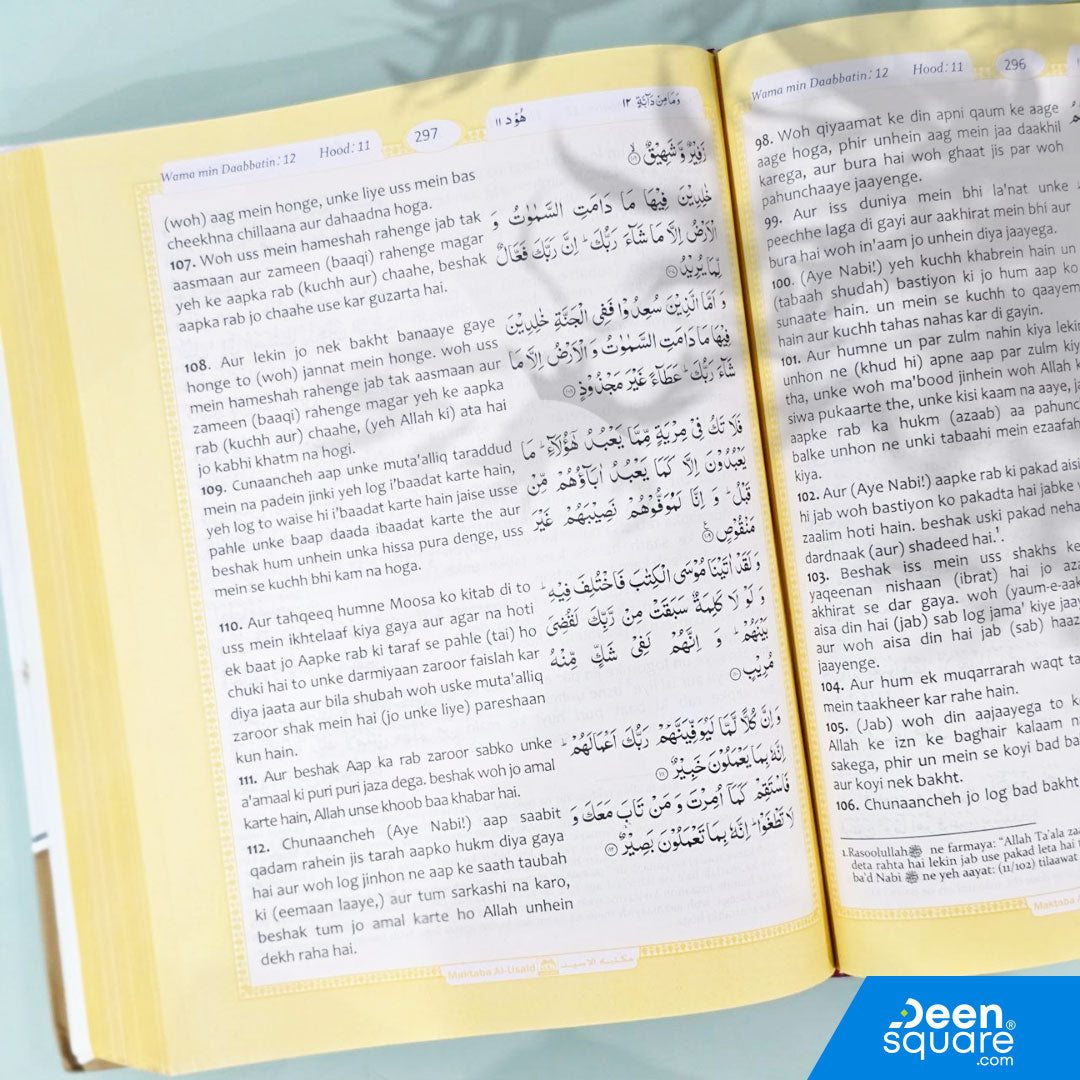 Wama min Daabbatin: 12
Hood: 11
297
هُوْد ١١
وَمَا مِنْ دَآبَّةٍ ١٢
(woh) aag mein honge, unke liye uss mein bas
cheekhna chillaana aur dahaadna hoga.
107. Woh uss mein hameshah rahenge jab tak
aasmaan aur zameen (baaqi) rahenge magar
yeh ke aapka rab (kuchh aur) chaahe, beshak
aapka rab jo chaahe use kar guzarta hai.
108. Aur lekin jo nek bakht banaaye gaye
honge to (woh) jannat mein honge. woh uss
mein hameshah rahenge jab tak aasmaan aur
zameen (baaqi) rahenge magar yeh ke aapka
rab (kuchh aur) chaahe, (yeh Allah ki) ata hai
jo kabhi khatm na hogi.
109. Cunaancheh aap unke muta'alliq taraddud
mein na padein jinki yeh log i'baadat karte hain,
yeh log to waise hi i'baadat karte hain jaise usse
pahle unke baap daada ibaadat karte the aur
beshak hum unhein unka hissa pura denge, uss
mein se kuchh bhi kam na hoga.
110. Aur tahqeeq humne Moosa ko kitab di to
uss mein ikhtelaaf kiya gaya aur agar na hoti
ek baat jo Aapke rab ki taraf se pahle (tai) ho
chuki hai to unke darmiyaan zaroor faislah kar
diya jaata aur bila shubah woh uske muta'alliq
zaroor shak mein hai (jo unke liye) pareshaan
kun hain.
111. Aur beshak Aap ka rab zaroor sabko unke
a'amaal ki puri puri jaza dega. beshak woh jo amal
karte hain, Allah unse khoob baa khabar hai.
112. Chunaancheh (Aye Nabi!) aap saabit
qadam rahein jis tarah aapko hukm diya gaya
hai aur woh log jinhon ne aap ke saath taubah
ki (eemaan laaye,) aur tum sarkashi na karo,
beshak tum jo amal karte ho Allah unhein
dekh raha hai.
زَفِيْرٌ وَّ شَهِيْقٌ ۙ
خٰلِدِيْنَ فِيْهَا مَا دَامَتِ السَّمٰوٰتُ وَ
الْاَرْضُ اِلَّا مَا شَآءَ رَبُّكَ ؕ اِنَّ رَبَّكَ فَعَّالٌ
لِّمَا يُرِيْدُ ۝۱۰۷
وَ اَمَّا الَّذِيْنَ سُعِدُوْا فَفِي الْجَنَّةِ خٰلِدِيْنَ
فِيْهَا مَا دَامَتِ السَّمٰوٰتُ وَ الْاَرْضُ اِلَّا مَا
شَآءَ رَبُّكَ ؕ عَطَآءً غَيْرَ مَجْذُوْذٍ ۝۱۰۸
فَلَا تَكُ فِيْ مِرْيَةٍ مِّمَّا يَعْبُدُ هٰٓؤُلَآءِ ؕ مَا
يَعْبُدُوْنَ اِلَّا كَمَا يَعْبُدُ اٰبَآؤُهُمْ مِّنْ
قَبْلُ ؕ وَ اِنَّا لَمُوَفُّوْهُمْ نَصِيْبَهُمْ غَيْرَ
مَنْقُوْصٍ ۝۱۰۹
وَ لَقَدْ اٰتَيْنَا مُوْسَى الْكِتٰبَ فَاخْتُلِفَ فِيْهِ ؕ
وَ لَوْ لَا كَلِمَةٌ سَبَقَتْ مِنْ رَّبِّكَ لَقُضِيَ
بَيْنَهُمْ ؕ وَ اِنَّهُمْ لَفِيْ شَكٍّ مِّنْهُ
مُرِيْبٍ ۝۱۱۰
وَ اِنَّ كُلًّا لَّمَّا لَيُوَفِّيَنَّهُمْ رَبُّكَ اَعْمَالَهُمْ ؕ
اِنَّهٗ بِمَا يَعْمَلُوْنَ خَبِيْرٌ ۝۱۱۱
فَاسْتَقِمْ كَمَاۤ اُمِرْتَ وَ مَنْ تَابَ مَعَكَ وَ
لَا تَطْغَوْا ؕ اِنَّهٗ بِمَا تَعْمَلُوْنَ بَصِيْرٌ ۝۱۱۲
Maktaba Al-Usaid
مكتبه الاسيد
Wama min Daabbatin: 12
Hood: 11
296
98. Woh qiyaamat ke din apni qaum ke aage
aage hoga, phir unhein aag mein jaa daakhil
karega, aur bura hai woh ghaat jis par woh
pahunchaaye jaayenge.
99. Aur iss duniya mein bhi la'nat unke
peechhe laga di gayi aur aakhirat mein bhi aur
bura hai woh in'aam jo unhein diya jaayega.
100. (Aye Nabi!) yeh kuchh khabrein hain un
(tabaah shudah) bastiyon ki jo hum aap ko
sunaate hain. un mein se kuchh to qaayem
hain aur kuchh tahas nahas kar di gayin.
101. Aur humne un par zulm nahin kiya lekin
unhon ne (khud hi) apne aap par zulm kiya
tha, unke woh ma'bood jinhein woh Allah k
siwa pukaarte the, unke kisi kaam na aaye, j
aapke rab ka hukm (azaab) aa pahunc
balke unhon ne unki tabaahi mein ezaafah
kiya.
102. Aur (Aye Nabi!) aapke rab ki pakad aisi
hi jab woh bastiyon ko pakadta hai jabke
zaalim hoti hain. beshak uski pakad neha
dardnaak (aur) shadeed hai.¹.
103. Beshak iss mein uss shakhs ke
yaqeenan nishaan (ibrat) hai jo aza
akhirat se dar gaya. woh (yaum-e-aak
aisa din hai (jab) sab log jama' kiye jaay
aur woh aisa din hai jab (sab) haaz
jaayenge.
104. Aur hum ek muqarrarah waqt ta
mein taakheer kar rahe hain.
105. (Jab) woh din aajaayega to k
Allah ke izn ke baghair kalaam n
sakega, phir un mein se koyi bad ba
aur koyi nek bakht.
106. Chunaancheh jo log bad bakht
1.Rasoolullah ﷺ ne farmaya: "Allah Ta'ala zaa
deta rahta hai lekin jab use pakad leta hai t
ba'd Nabi ﷺ ne yeh aayat: (11/102) tilaawat
Maktaba
Deen
square®
.com